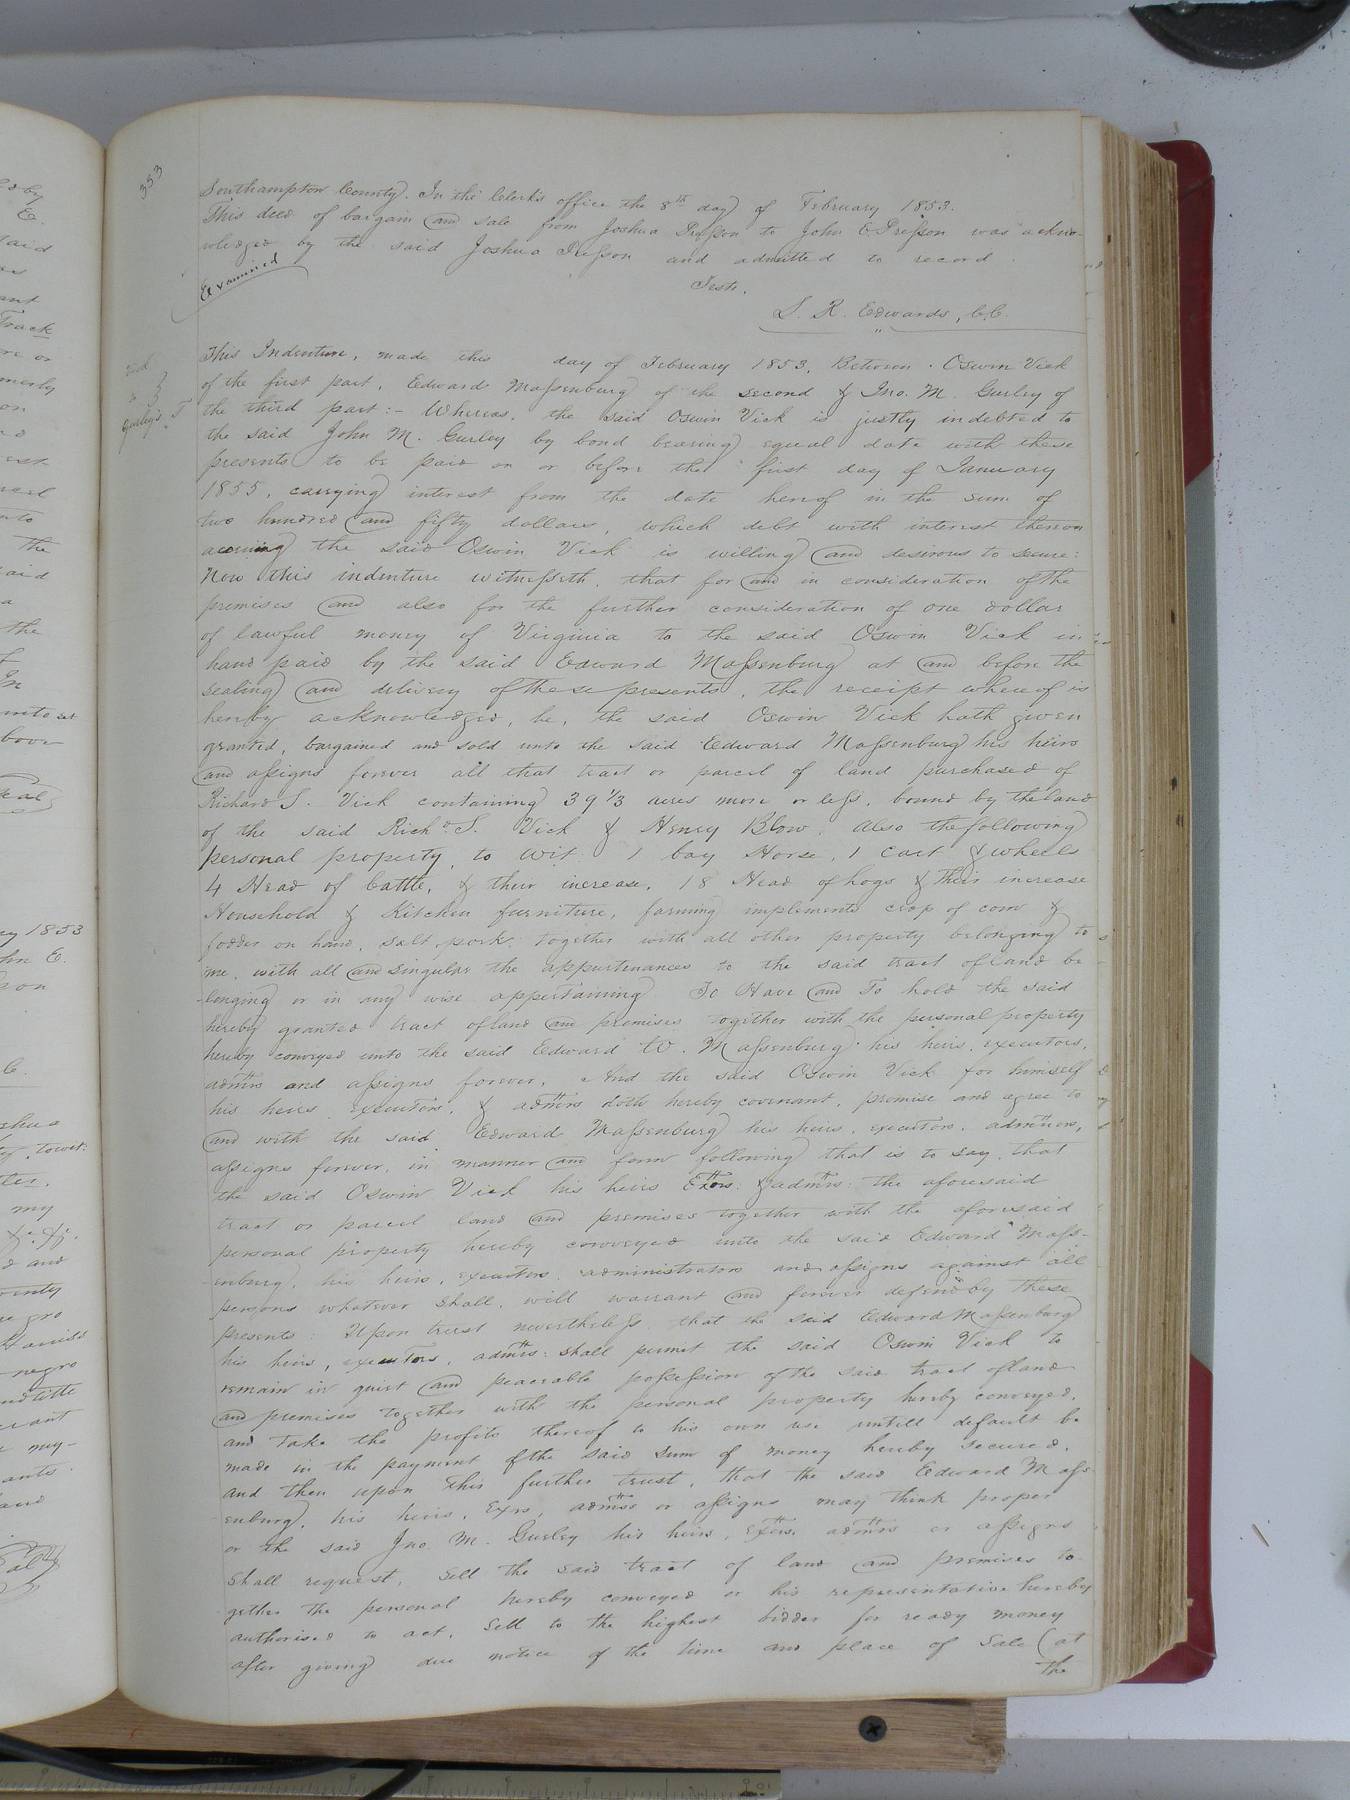 353
Southampton County. In the Clerk's office the 8th day of February 1853.
This deed of bargain and sale from Joshua Presson to John E Presson was ackno-
wledged by the said Joshua Presson and admitted to record.
Examined
Test.
L. R. Edwards, C.C.
Vick
to
Gurley's T
This Indenture, made this day of February 1853, Between Oswin Vick
of the first part, Edward Massenburg of the second & Jno. M. Gurley of
the third part:- Whereas, the said Oswin Vick is justly indebted to
the said John M. Gurley by bond bearing equal date with these
presents to be paid on or before the first day of January
1855, carrying interest from the date hereof in the sum of
two hundred and fifty dollars, which debt with interest thereon
accruing the said Oswin Vick is willing and desirous to secure:
Now this indenture witnesseth, that for and in consideration of the
premises and also for the further consideration of one dollar
of lawful money of Virginia to the said Oswin Vick in
hand paid by the said Edward Massenburg at and before the
sealing and delivery of these presents, the receipt whereof is
hereby acknowledged, he, the said Oswin Vick hath given
granted, bargained and sold unto the said Edward Massenburg his heirs
and assigns forever all that tract or parcel of land purchased of
Richard S. Vick containing 39 1/3 acres more or less, bound by the land
of the said Richd S. Vick & Henry Blow, also the following
personal property, to wit 1 bay Horse, 1 Cart & wheels
4 Head of Cattle, & their increase, 18 Head of hogs & their increase
Household & Kitchen furniture, farming implements crop of corn &
fodder on hand, salt pork together with all other property belonging to
me, with all and singular the appurtenances to the said tract of land be
-longing or in any wise appertaining To Have and To hold the said
hereby granted tract of land and premises together with the personal property
hereby conveyed unto the said Edward W. Massenburg his heirs, executors,
admtrs and assigns forever, And the said Oswin Vick for himself
his heirs executors, & admtrs doth hereby covenant, promise and agree to
and with the said Edward Massenburg his heirs, executors, admtrors,
assigns forever, in manner and form following that is to say, that
the said Oswin Vick his heirs Extors. & admtrs: the aforesaid
tract or parcel land and premises together with the aforesaid
personal property hereby conveyed unto the said Edward Mass-
-enburg, his heirs, executors administrators and assigns against all
persons whatever shall, will warrant and forever defend by these
presents: Upon trust nevertheless that the said Edward Massenburg
his heirs, executors, admtrs: shall permit the said Oswin Vick to
remain in quiet and peacerble possession of the said tract of land
and premises together with the personal property hereby conveyed,
and take the profits thereof to his own use untill default be
made in the payment of the said sum of money hereby secured,
and then upon this further trust, that the said Edward Mass-
enburg, his heirs, Exrs, admtrs or assigns may think proper
or the said Jno. M. Gurley his heirs, Extrs, admtrs or assigns
shall request, sell the said tract of land and premises to-
gether the personal hereby conveyed or his representative hereby
authorised to act, sell to the highest bidder for ready money
after giving due notice of the time and place of sale (at
the